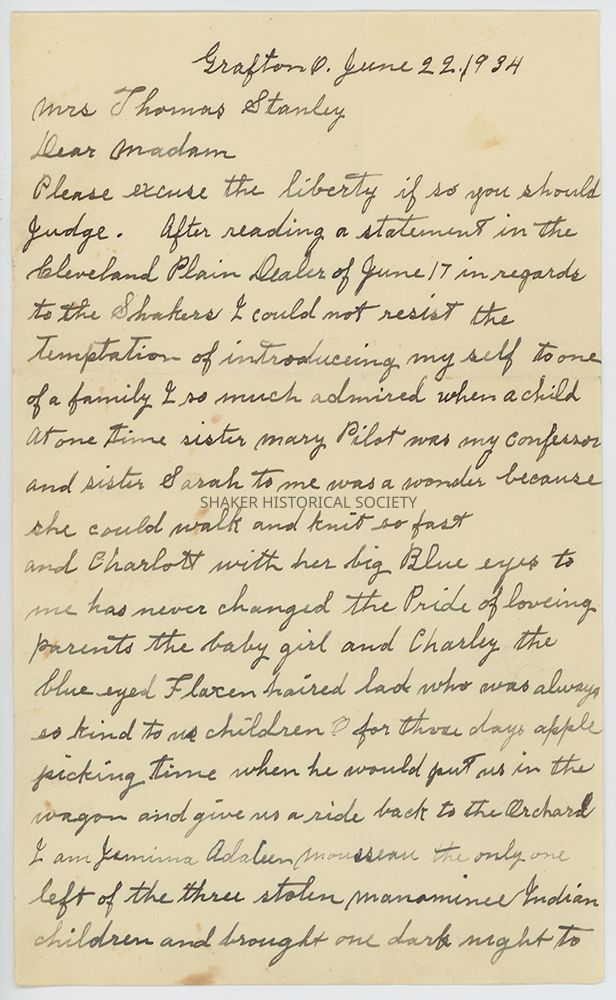 Grafton O. June 22. 1934
Mrs Thomas Stanley
Dear Madam
Please excuse the liberty if so you should
Judge. After reading a statement in the
Cleveland Plain Dealer of June 17 in regards
to the Shakers I could not resist the
temptation of introduceing my self to one
of a family I so much admired when a child
At one time sister Mary Pilot was my confessor
and sister Sarah to me was a wonder because
SHAKER HISTORICAL SOCIETY
she could walk and knit so fast
and Charlott with her big Blue eyes to
me has never changed the Pride of loveing
parents the baby girl and Charley the
blue eyed Flaxen haired lad who was always
so kind to us children O for those days apple
picking time when he would put us in the
wagon and give us a ride back to the Orchard
I am Jemima Adaleen Mousseau the only one
left of the three stolen Manominee Indian
children and brought one dark night to